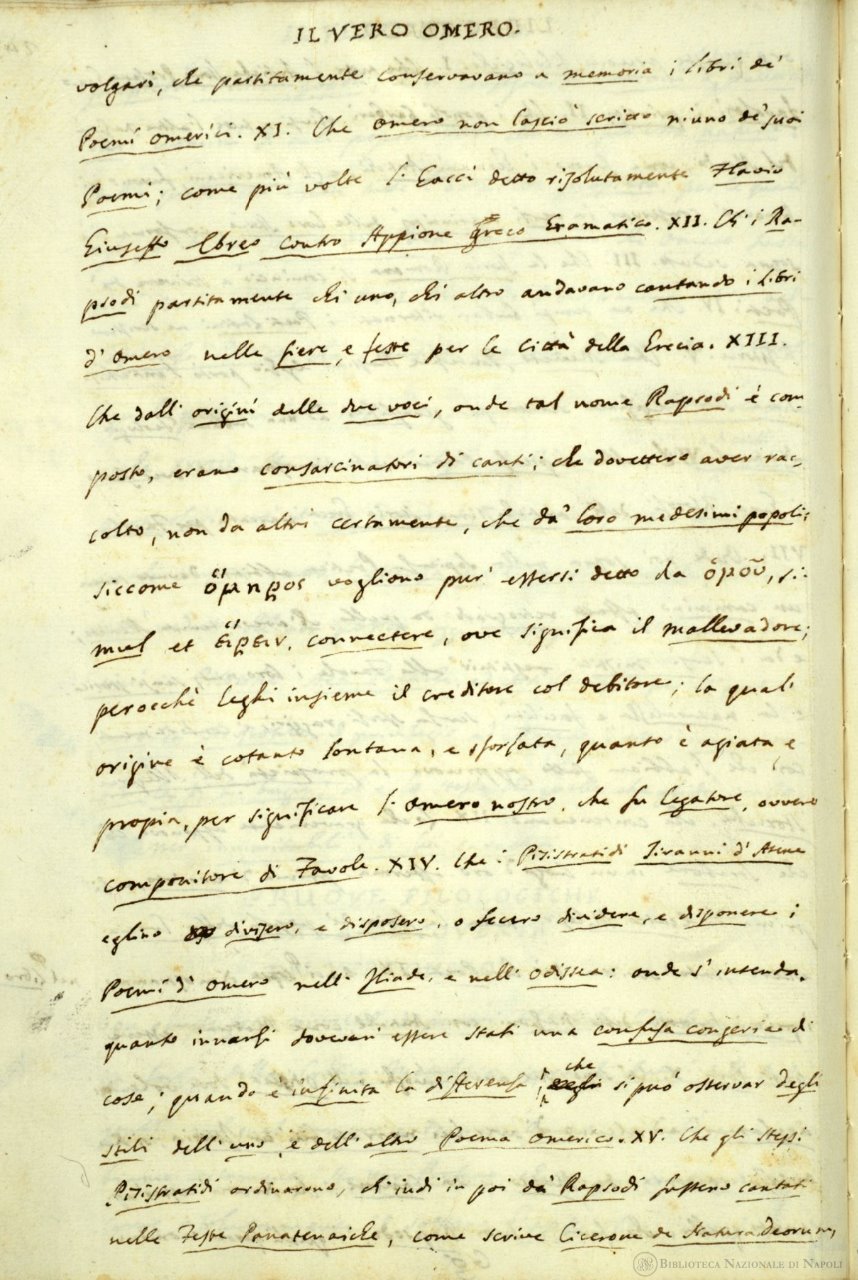 IL VERO OMERO.
volgari, che partitamente conservavano a memoria i libri de'
Poemi Omerici. XI. Che Omero non lasciò scritto niuno de' suoi
Poemi; come più volte l' hacci detto risolutamente Flavio
Giuseffo Ebreo contro Appione greco Gramatico. XII. Ch' i Ra-
psodi partitamente chi uno, chi altro andavano cantando i libri
d' Omero nelle fiere, e feste per le città della Grecia. XIII.
Che dall' origini delle due voci, onde tal nome Rapsodi è com
posto, erano consarcinatori di canti; che dovettero aver rac-
colto, non da altri certamente, che da' loro medesimi popoli:
siccome ὅμηρος vogliono pur' essersi detto da ὁμοῦ, si-
mul et εἴρειν, connectere, ove significa il mallevadore;
perocchè leghi insieme il creditore col debitore; la qual'
origine è cotanto lontana, e sforzata, quanto è agiata, e
propia, per significare l' Omero nostro, che fu legatore, ovvero
componitore di Favole. XIV. Che i Pisistratidi Tiranni d' Atene
eglino divisero, e disposero, o fecero dividere, e disponere i
Poemi d' Omero nell' Iliade, e nell' Odissea: onde s' intenda,
quanto innanzi dovevan' essere stati una confusa congerie di
cose; quando è infinita la differenza che si può osservar degli
stili dell' uno, e dell' altro Poema Omerico. XV. Che gli stessi
Pisistratidi ordinarono, ch' indi in poi da' Rapsodi fussero cantati
nelle Feste Panatenaiche, come scrive Cicerone de Natura Deorum,
BIBLIOTECA NAZIONALE DI NAPOLI